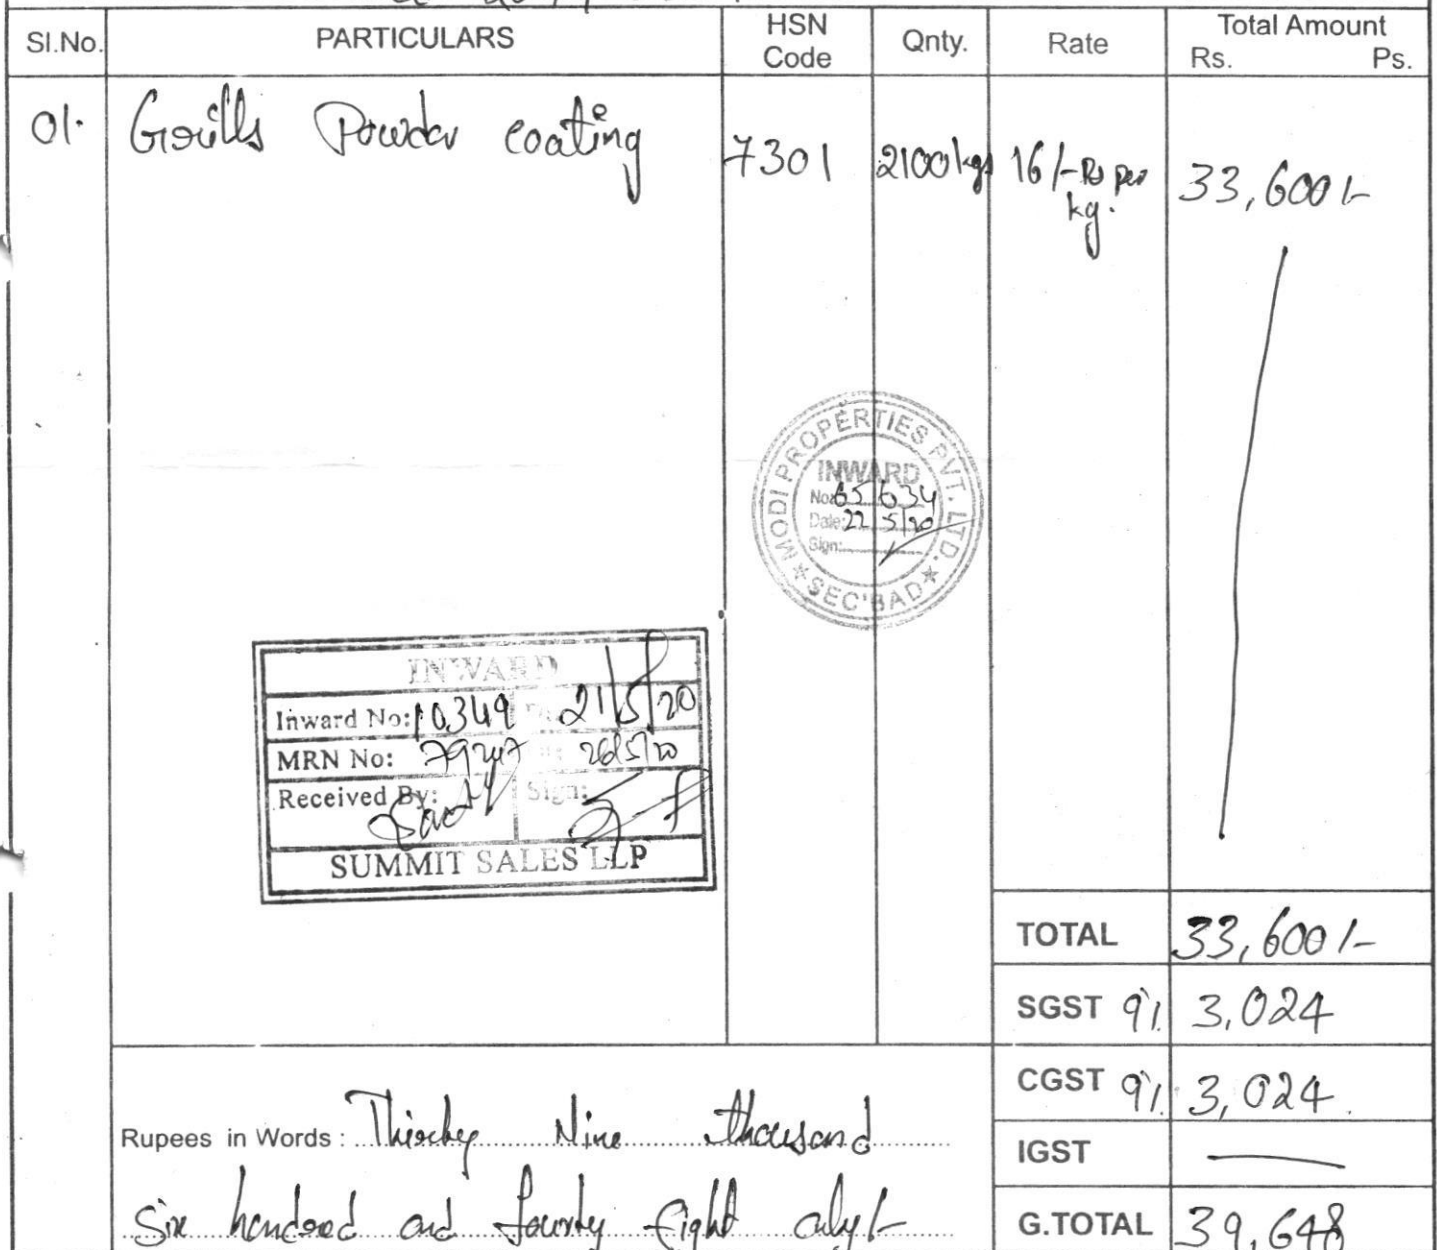 Sl.No. PARTICULARS HSN Code Qnty. Rate Total Amount Rs. Ps.
01. Grills Powder coating 7301 2100kgs 16/- Rs per kg. 33,600/-
MODI PROPERTIES PVT. LTD.
INWARD
No: 65634
Date: 22/5/20
Sign:
★ SEC'BAD ★
INWARD
Inward No: 10349 21/5/20
MRN No: 79247 26/5/20
Received By: Sign:
SUMMIT SALES LLP
TOTAL 33,600/-
SGST 9% 3,024
CGST 9% 3,024
IGST —
Rupees in Words : Thirty Nine thousand
Six hundred and fourty Eight only/-
G.TOTAL 39,648